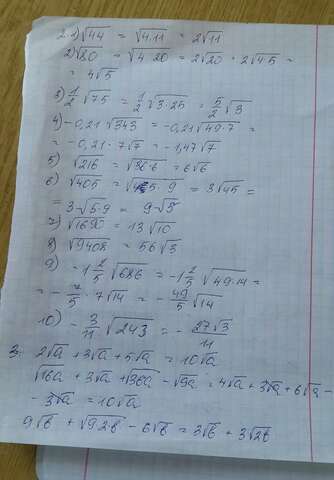 2. 1) √44 = √4·11 = 2√11
2) √80 = √4·20 = 2√20 = 2√4·5 =
= 4√5
3) 1/2 √75 = 1/2 √3·25 = 5/2 √3
4) -0,21 √343 = -0,21 √49·7 =
= -0,21 · 7√7 = -1,47√7
5) √216 = √36·6 = 6√6
6) √405 = √45·9 = 3√45 =
= 3√5·9 = 9√5
7) √1690 = 13√10
8) √9408 = 56√3
9) -1 2/5 √686 = -1 2/5 √49·14 =
= -7/5 · 7√14 = -49/5 √14
10) -3/11 √243 = -27√3/11
3. 2√a + 3√a + 5√a = 10√a
√16a + 3√a + √36a - √9a = 4√a + 3√a + 6√a -
- 3√a = 10√a
9√b + √92·b - 6√b = 3√b + 3√2b